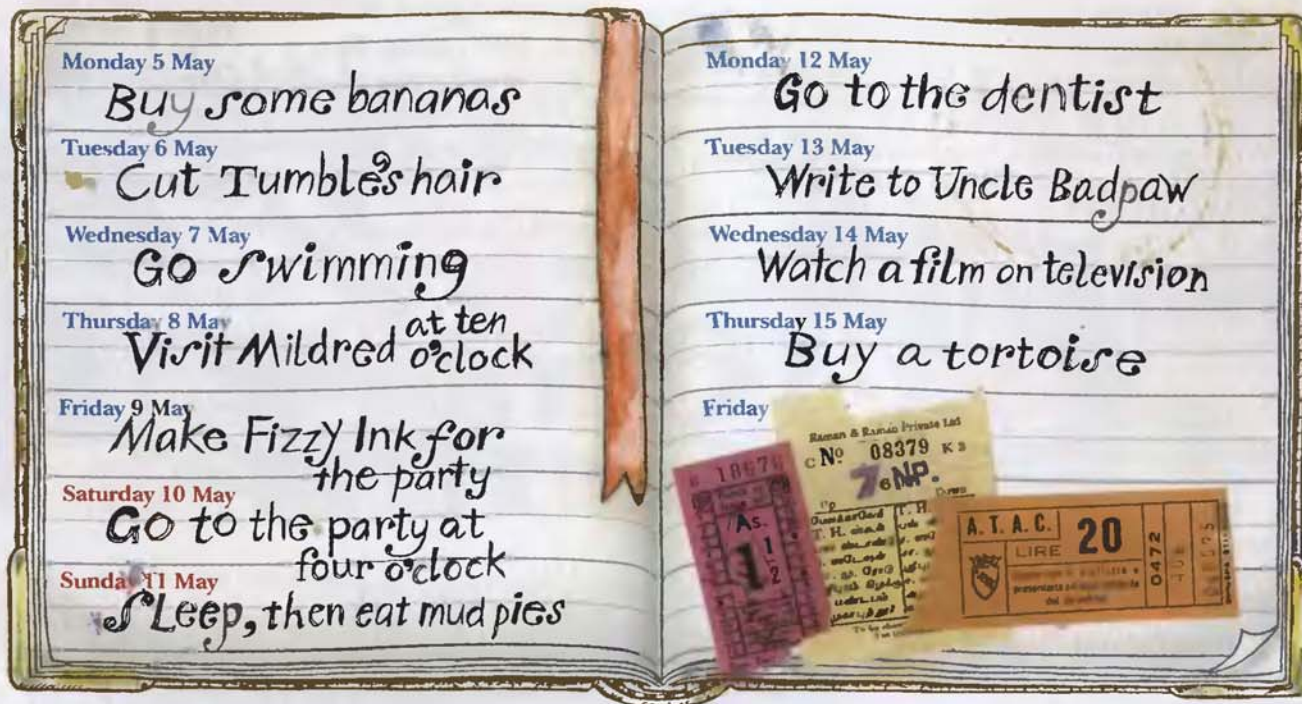 Monday 5 May
Buy some bananas
Tuesday 6 May
Cut Tumble's hair
Wednesday 7 May
Go swimming
Thursday 8 May
Visit Mildred at ten
o'clock
Friday 9 May
Make Fizzy Ink for
the party
Saturday 10 May
Go to the party at
four o'clock
Sunday 11 May
Sleep, then eat mud pies
Monday 12 May
Go to the dentist
Tuesday 13 May
Write to Uncle Badpaw
Wednesday 14 May
Watch a film on television
Thursday 15 May
Buy a tortoise
Friday
Raman & Raman Private Ltd
C Nº 08379 K 3
6 NP.
Up Down
As.
1 1/2
A. T. A. C.
LIRE 20
0472